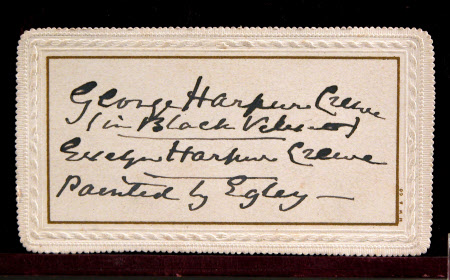 George Harpur Crewe
(in Black Velvet)
Evelyn Harpur Crewe
Painted by Egley —